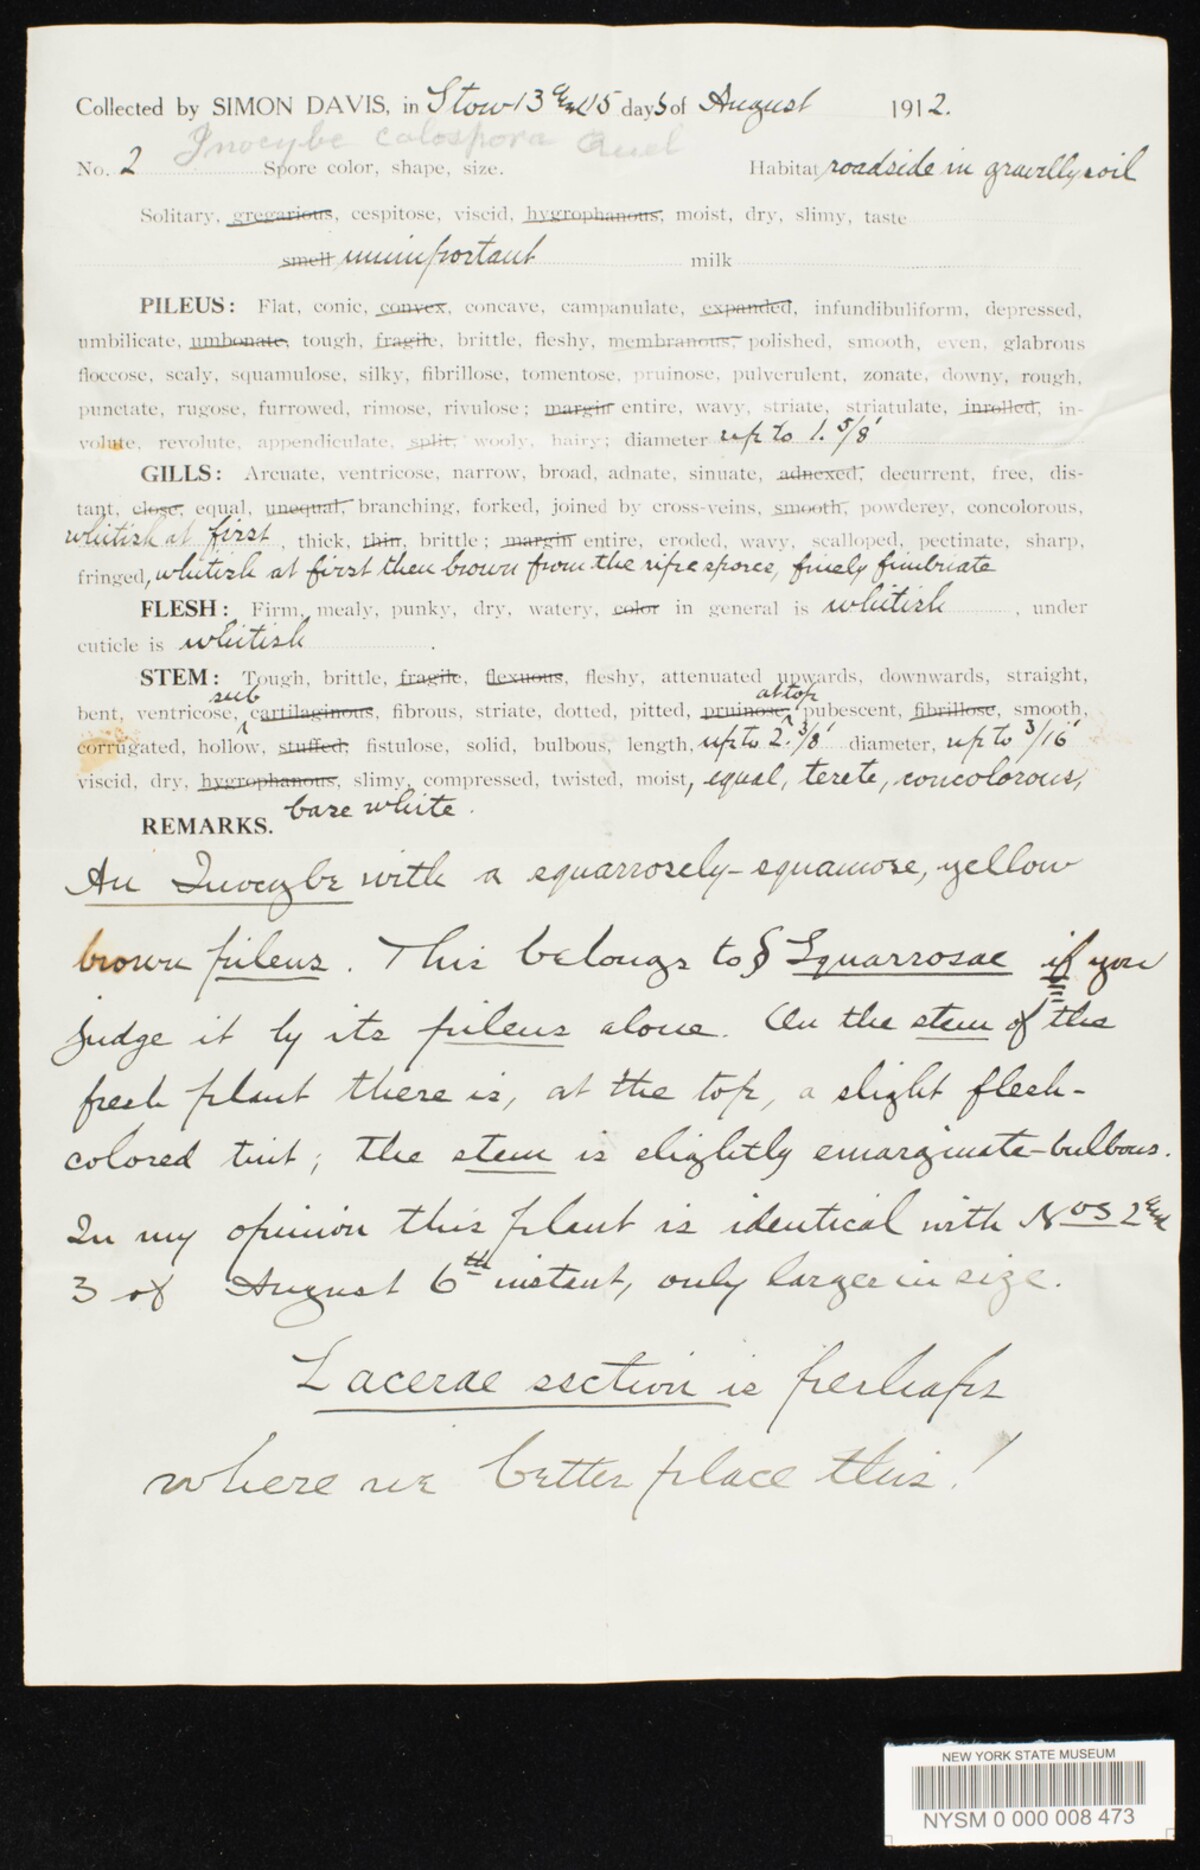 Collected by SIMON DAVIS, in Stow 13 & 15 days of August 1912.
Inocybe calospora Quel
No. 2 Spore color, shape, size. Habitat roadside in gravelly soil
Solitary, gregarious, cespitose, viscid, hygrophanous, moist, dry, slimy, taste
smell unimportant milk
PILEUS: Flat, conic, convex, concave, campanulate, expanded, infundibuliform, depressed,
umbilicate, umbonate, tough, fragile, brittle, fleshy, membranous, polished, smooth, even, glabrous
floccose, scaly, squamulose, silky, fibrillose, tomentose, pruinose, pulverulent, zonate, downy, rough,
punctate, rugose, furrowed, rimose, rivulose; margin entire, wavy, striate, striatulate, inrolled, in-
volute, revolute, appendiculate, split, wooly, hairy; diameter up to 1. 5/8'
GILLS: Arcuate, ventricose, narrow, broad, adnate, sinuate, adnexed, decurrent, free, dis-
tant, close, equal, unequal, branching, forked, joined by cross-veins, smooth, powderey, concolorous,
whitish at first, thick, thin, brittle; margin entire, eroded, wavy, scalloped, pectinate, sharp,
fringed, whitish at first then brown from the ripe spores, finely fimbriate
FLESH: Firm, mealy, punky, dry, watery, color in general is whitish, under
cuticle is whitish.
STEM: Tough, brittle, fragile, flexuous, fleshy, attenuated upwards, downwards, straight,
sub at top
bent, ventricose, cartilaginous, fibrous, striate, dotted, pitted, pruinose, pubescent, fibrillose, smooth,
corrugated, hollow, stuffed, fistulose, solid, bulbous, length, up to 2. 3/8' diameter, up to 3/16'
viscid, dry, hygrophanous, slimy, compressed, twisted, moist, equal, terete, concolorous,
base white.
REMARKS.
An Inocybe with a squarrosely-squamose, yellow
brown pileus. This belongs to § Squarrosae if you
judge it by its pileus alone. On the stem of the
fresh plant there is, at the top, a slight flesh-
colored tint; the stem is slightly emarginate-bulbous.
In my opinion this plant is identical with Nos 2 &
3 of August 6th instant, only larger in size.
Lacerae section is perhaps
where we better place this!
NEW YORK STATE MUSEUM
NYSM 0 000 008 473